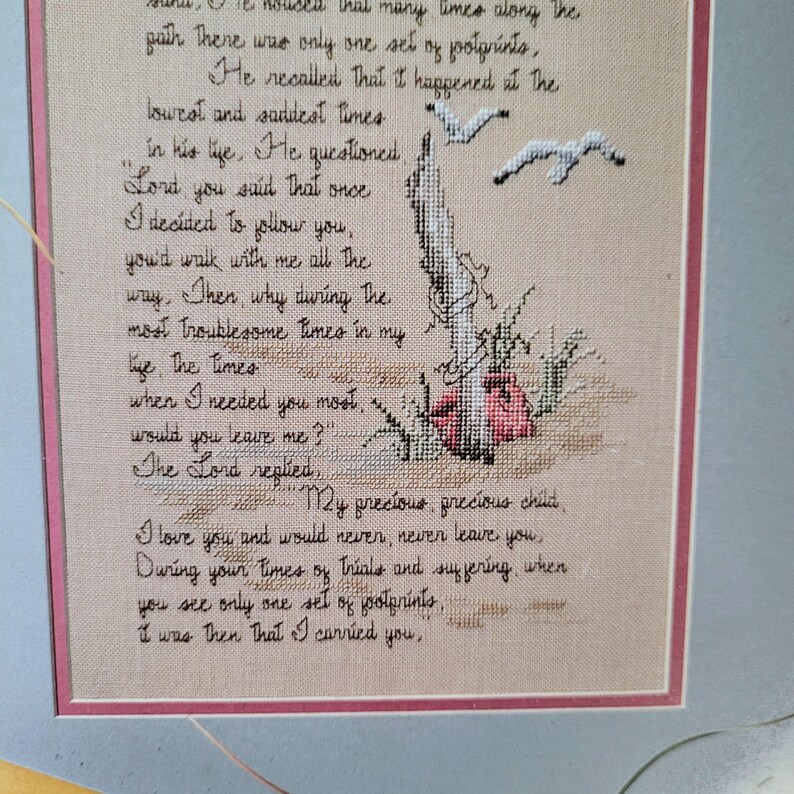 sand, He noticed that many times along the
path there was only one set of footprints,
He recalled that it happened at the
lowest and saddest times
in his life, He questioned
"Lord, you said that once
I decided to follow you,
you'd walk with me all the
way, Then, why during the
most troublesome times in my
life, the times
when I needed you most,
would you leave me?"
The Lord replied,
"My precious, precious child,
I love you and would never, never leave you,
During your times of trials and suffering, when
you see only one set of footprints,
it was then that I carried you,"